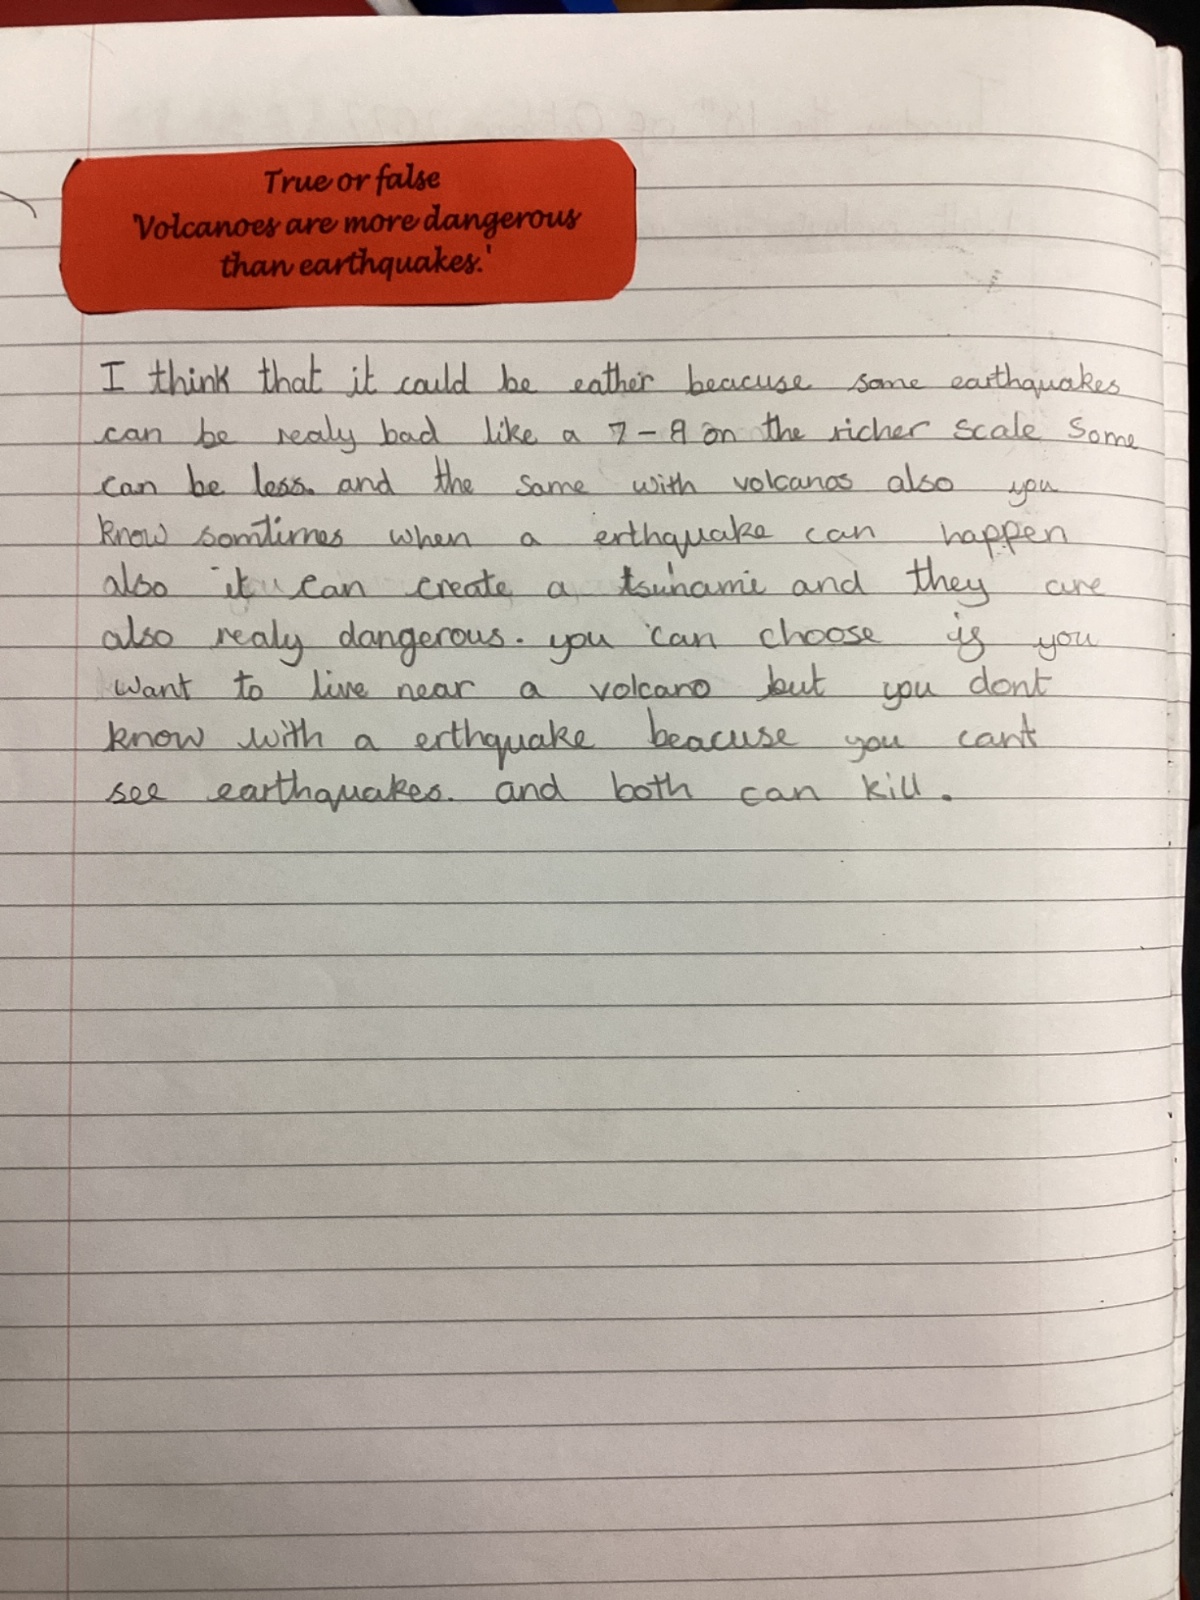 True or false
'Volcanoes are more dangerous
than earthquakes.'
I think that it could be eather beacuse some earthquakes
can be realy bad like a 7-8 on the richer scale Some
can be less. and the same with volcanos also you
know somtimes when a erthquake can happen
also it can create a tsunami and they are
also realy dangerous. you can choose if you
want to live near a volcano but you dont
know with a erthquake beacuse you cant
see earthquakes. and both can kill.